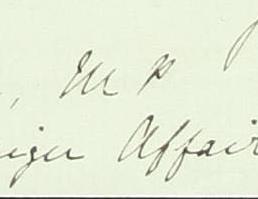 , M P
eign Affair